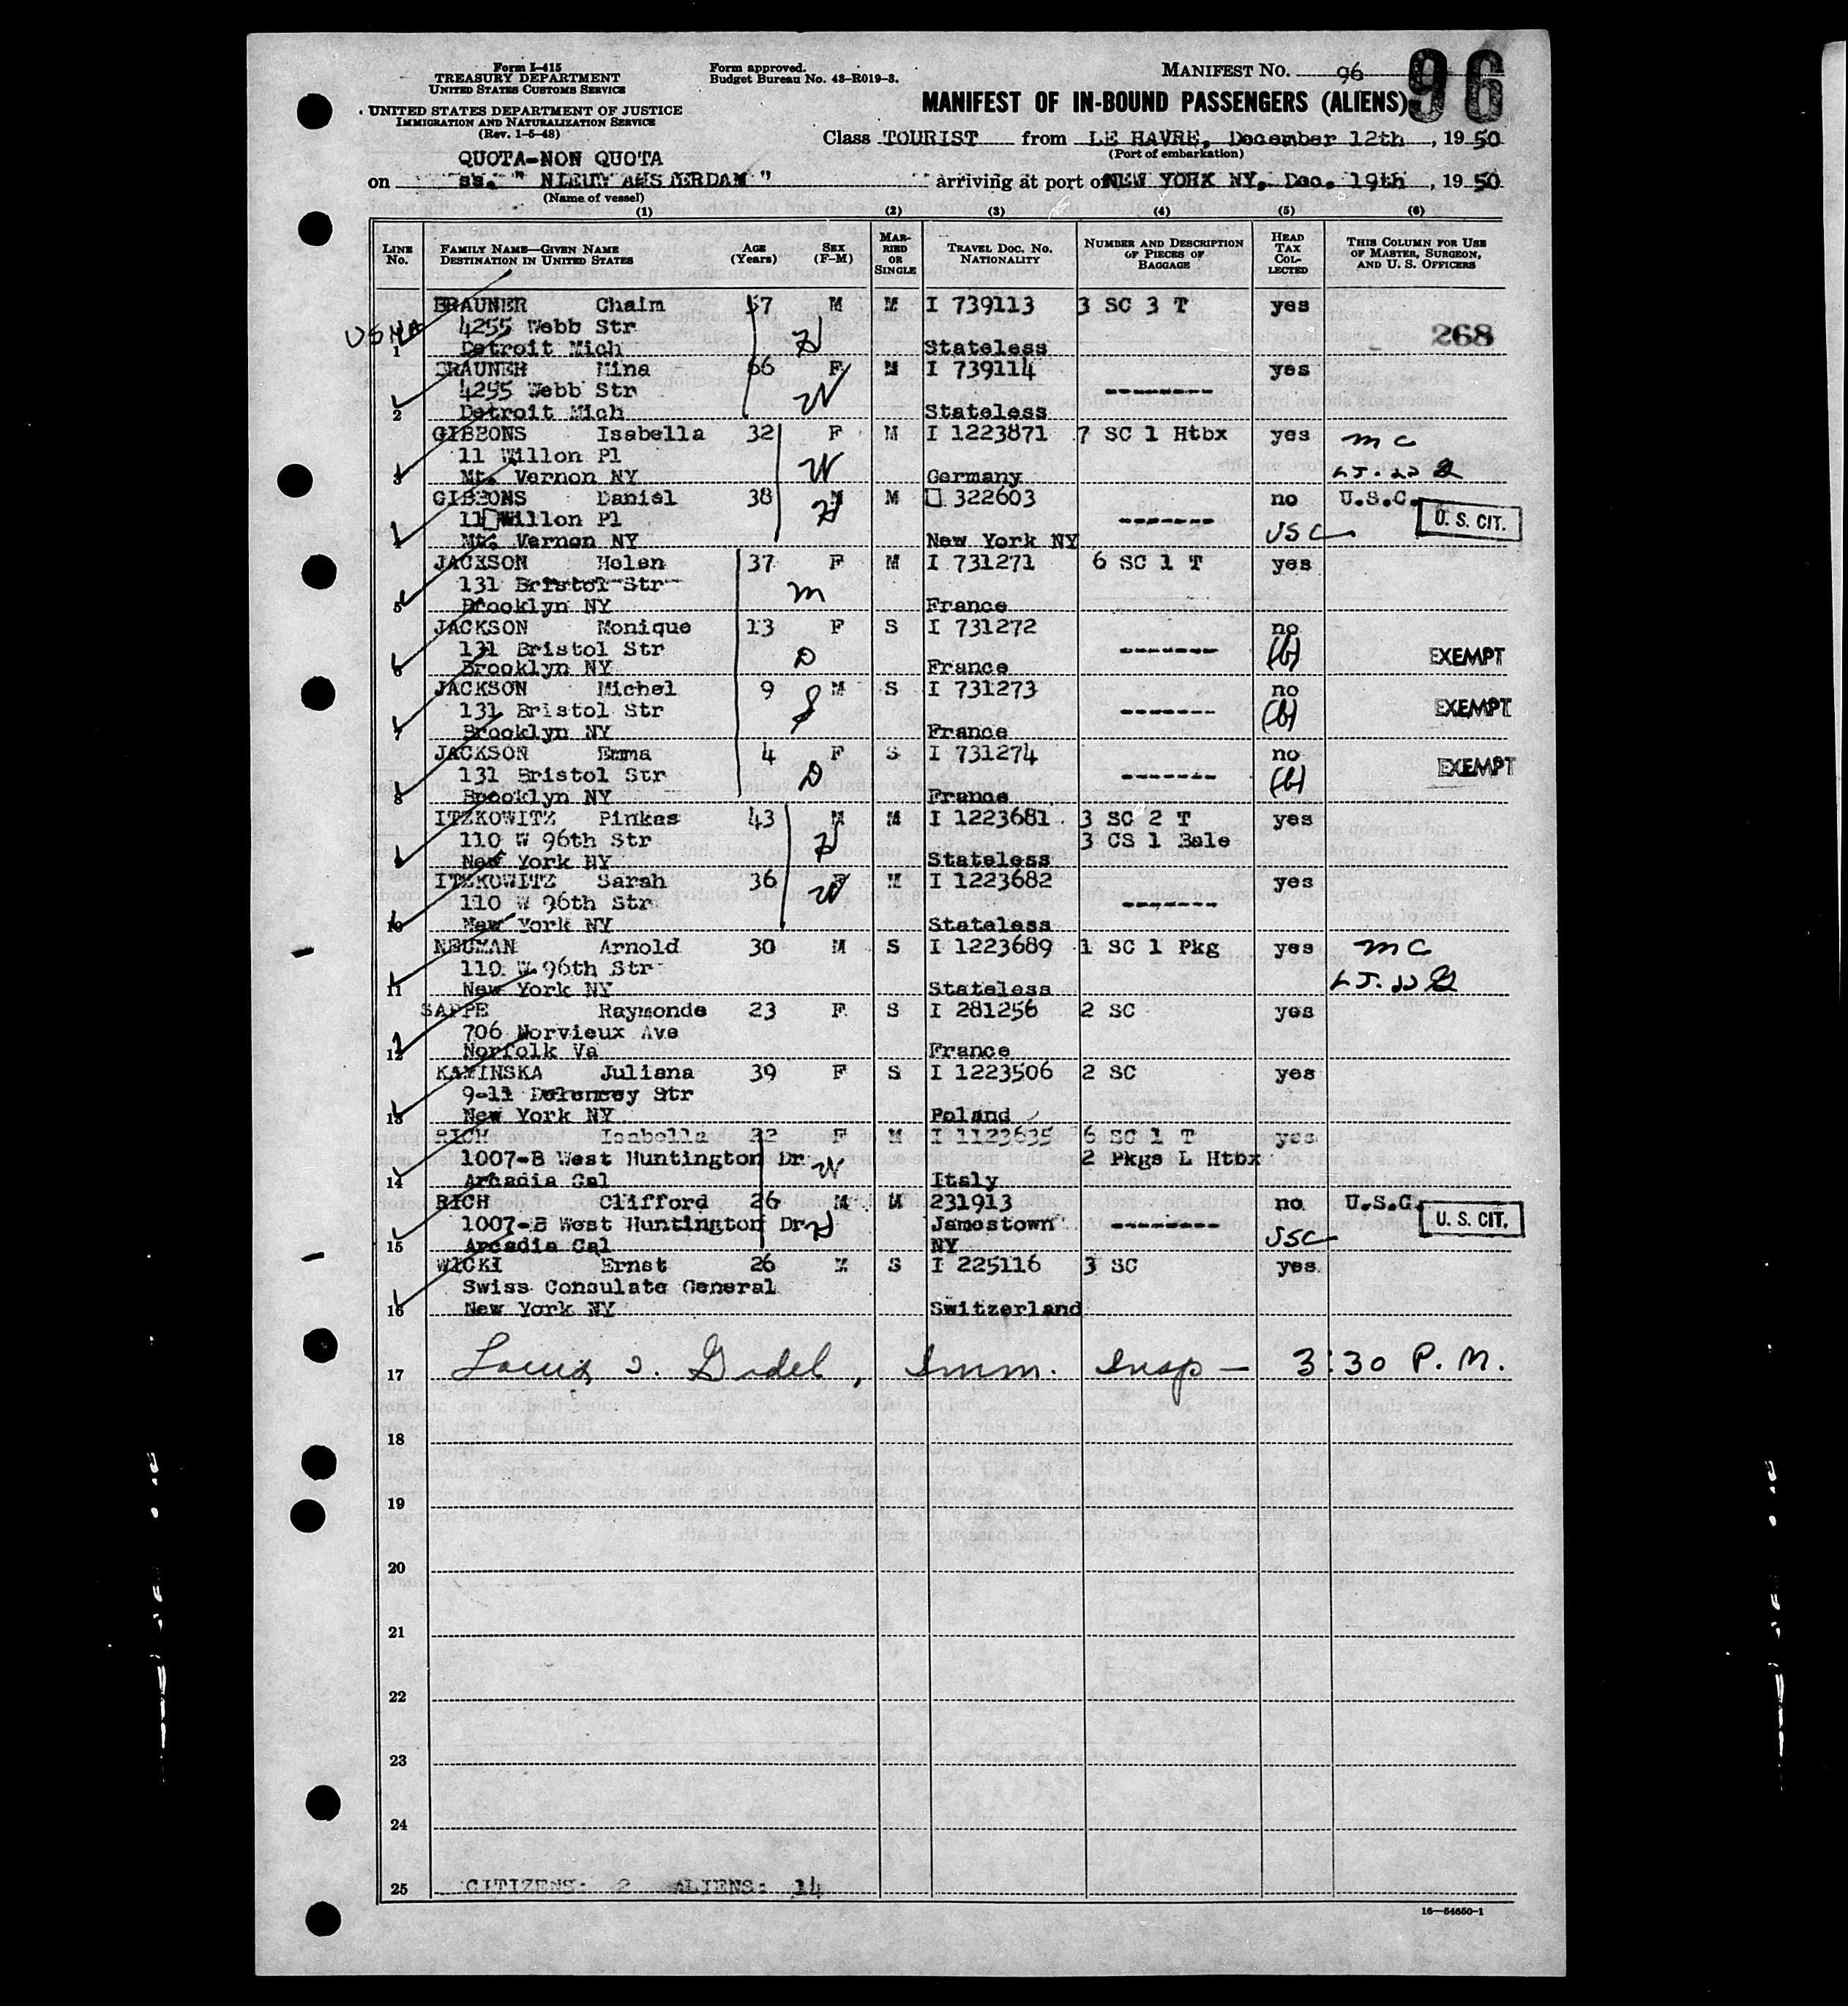 Form I-415
TREASURY DEPARTMENT
UNITED STATES CUSTOMS SERVICE
UNITED STATES DEPARTMENT OF JUSTICE
IMMIGRATION AND NATURALIZATION SERVICE
(Rev. 1-5-48)
Form approved.
Budget Bureau No. 43-R019-3.
MANIFEST NO. 96
96
MANIFEST OF IN-BOUND PASSENGERS (ALIENS)
Class TOURIST from LE HAVRE, December 12th, 1950
(Port of embarkation)
QUOTA-NON QUOTA
on ss. " NIEUW AMSTERDAM " arriving at port of NEW YORK NY, Dec. 19th, 1950
(Name of vessel)
(1) (2) (3) (4) (5) (6)
LINE NO. FAMILY NAME—GIVEN NAME DESTINATION IN UNITED STATES AGE (Years) SEX (F-M) MARRIED OR SINGLE TRAVEL DOC. NO. NATIONALITY NUMBER AND DESCRIPTION OF PIECES OF BAGGAGE HEAD TAX COLLECTED THIS COLUMN FOR USE OF MASTER, SURGEON, AND U. S. OFFICERS
BRAUNER Chaim 57 M M I 739113 3 SC 3 T yes
4255 Webb Str 268
1 Detroit Mich Stateless
BRAUNER Mina 66 F M I 739114 yes
4255 Webb Str W ---------
2 Detroit Mich Stateless
GIBBONS Isabella 32 F M I 1223871 7 SC 1 Htbx yes MC
11 Willon Pl W
3 Mt. Vernon NY Germany
GIBBONS Daniel 38 M M 322603 no U.S.C.
11 Willon Pl H -------- U. S. CIT.
4 Mt. Vernon NY New York NY USC
JACKSON Helen 37 F M I 731271 6 SC 1 T yes
131 Bristol Str M
5 Brooklyn NY France
JACKSON Monique 13 F S I 731272 no
131 Bristol Str D -------- (b) EXEMPT
6 Brooklyn NY France
JACKSON Michel 9 M S I 731273 no
131 Bristol Str S -------- (b) EXEMPT
7 Brooklyn NY France
JACKSON Emma 4 F S I 731274 no
131 Bristol Str D -------- (b) EXEMPT
8 Brooklyn NY France
ITZKOWITZ Pinkas 43 M M I 1223681 3 SC 2 T yes
110 W 96th Str H 3 CS 1 Bale
New York NY Stateless
ITZKOWITZ Sarah 36 F M I 1223682 yes
110 W 96th Str W --------
10 New York NY Stateless
NEUMAN Arnold 30 M S I 1223689 1 SC 1 Pkg yes MC
110 W 96th Str
11 New York NY Stateless
SAPPE Raymonde 23 F S I 281256 2 SC yes
706 Norvieux Ave
12 Norfolk Va France
KAMINSKA Juliana 39 F S I 1223506 2 SC yes
9-11 Delancey Str
13 New York NY Poland
RICH Isabella 22 F M I 1123635 6 SC 1 T yes
1007-B West Huntington Dr W 2 Pkgs L Htbx
14 Arcadia Cal Italy
RICH Clifford 26 M M 231913 no U.S.C.
1007-B West Huntington Dr H Jamestown --------- U. S. CIT.
15 Arcadia Cal NY USC
WICKI Ernst 26 M S I 225116 3 SC yes
Swiss Consulate General
16 New York NY Switzerland
17 Louis Imm. Insp — 3:30 P.M.
18
19
20
21
22
23
24
25 CITIZENS: 2 ALIENS: 14
16—54650-1